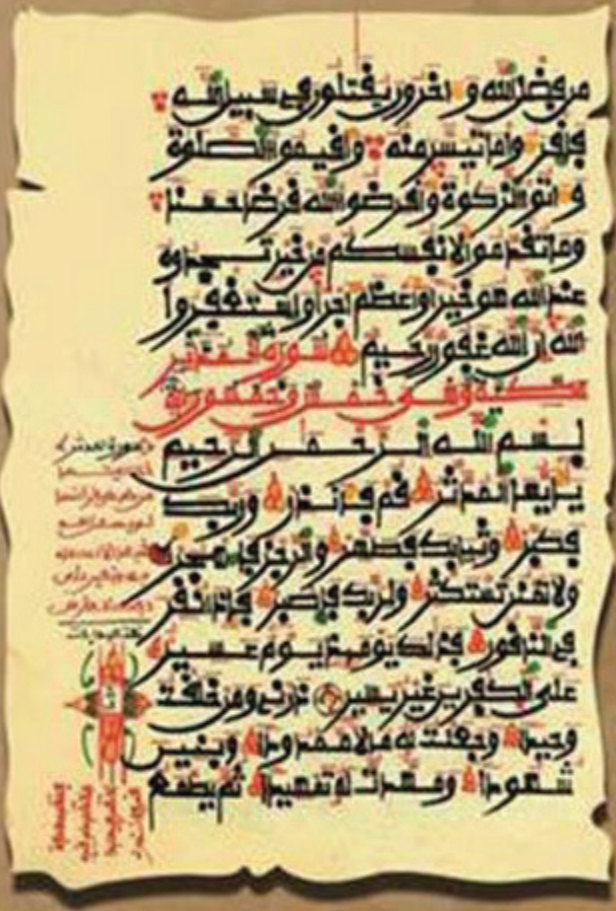 من فضل الله وءاخرون يقتلون في سبيل الله
فاقرءوا ما تيسر منه وأقيموا الصلوة
وءاتوا الزكوة وأقرضوا الله قرضا حسنا
وما تقدموا لأنفسكم من خير تجدوه
عند الله هو خيرا وأعظم أجرا واستغفروا
الله إن الله غفور رحيم سورة المدثر
مكية وهي خمس وخمسون آية
بسم الله الرحمن الرحيم
يأيها المدثر قم فأنذر وربك
فكبر وثيابك فطهر والرجز فاهجر
ولا تمنن تستكثر ولربك فاصبر فإذا نقر
في الناقور فذلك يومئذ يوم عسير
على الكفرين غير يسير ذرني ومن خلقت
وحيدا وجعلت له مالا ممدودا وبنين
شهودا ومهدت له تمهيدا ثم يطمع
سورة المدثر